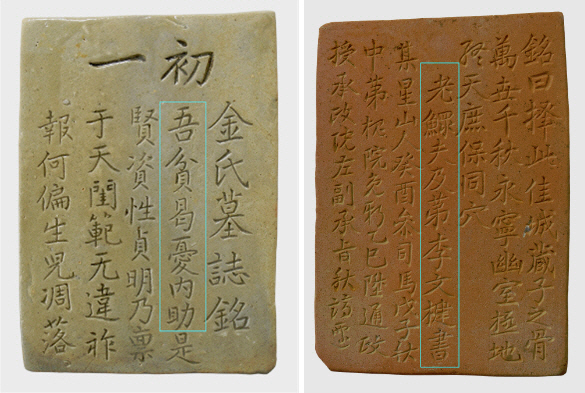 初一
金氏墓誌銘
吾貧曷憂內助是
賢資性貞明乃稟
于天閨範无違祚
報何偏生児凋落
銘曰擇此佳城藏子之骨
萬世千秋永寧幽室極地
終天庶保同穴
老鰥夫乃第李文楗書
其星山人癸酉參司馬戊子秋
中第槐院乙巳陞通政
授承政院左副承旨秋謫